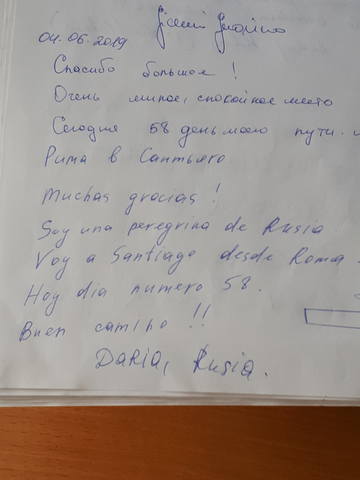 04.06.2019
Спасибо большое!
Очень милое, спокойное место
Сегодня 58 день моего пути. и
Рима в Сантьяго
Muchas gracias!
Soy una peregrina de Rusia
Voy a Santiago desde Roma.
Hoy dia numero 58.
Buen camino!!
Daria, Rusia.